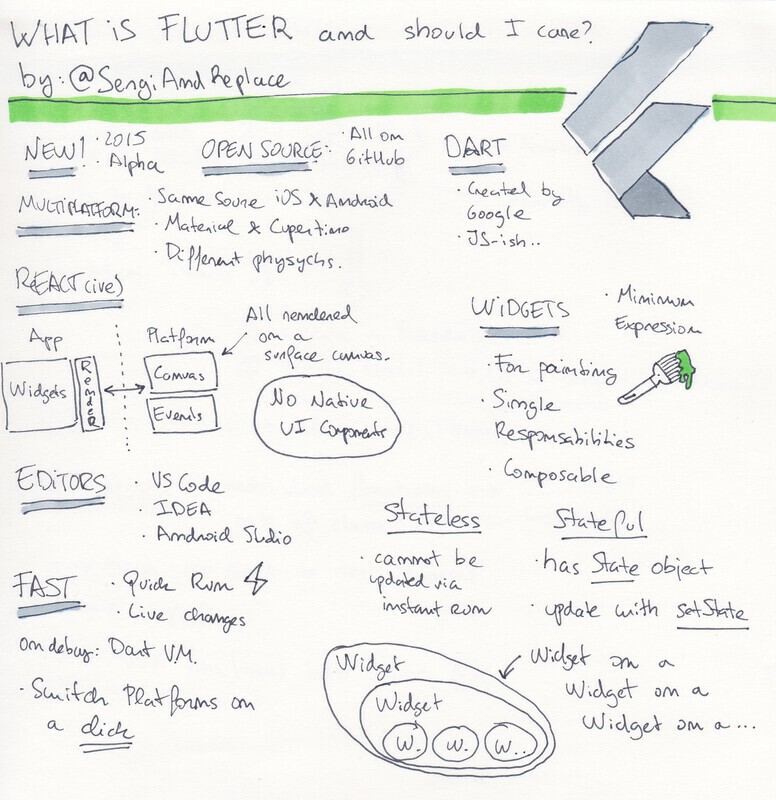 WHAT iS FLUTTER and should I care?
by: @SergiAndReplace
NEW!
· 2015
· Alpha
OPEN SOURCE:
· All on
GitHub
DART
· Created by
Google
· JS-ish..
MULTIPLATFORM:
· Same Soure iOS & Android
· Material & Cupertino
· Different physychs.
REACT(ive)
App
Widgets
RendeR
Platform
Canvas
Events
All rendered
on a
surface canvas.
No Native
UI Components
WiDGETS
· Minimum
Expression
· For painting
· Single
Responsabilities
· Composable
EDiTORS
· VS Code
· IDEA
· Android Studio
Stateless
· cannot be
updated via
instant run
Stateful
· has State object
· update with setState
FAST
· Quick Run
· Live changes
on debug: Dart V.M.
· Switch Platforms on
a click
Widget
Widget
W.
W.
W..
Widget on a
Widget on a
Widget on a ...